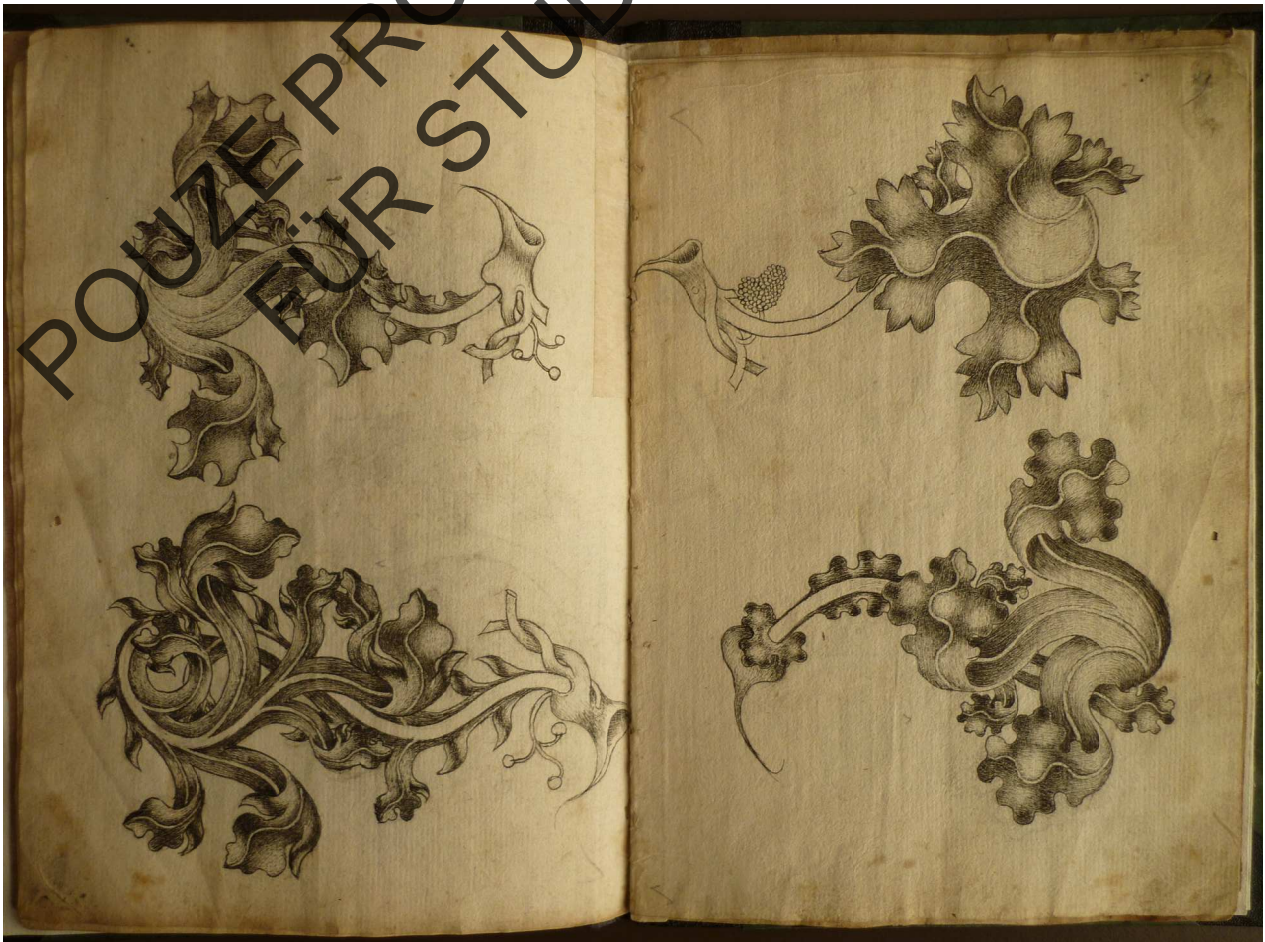 POUZE PRO
FÜR STUD